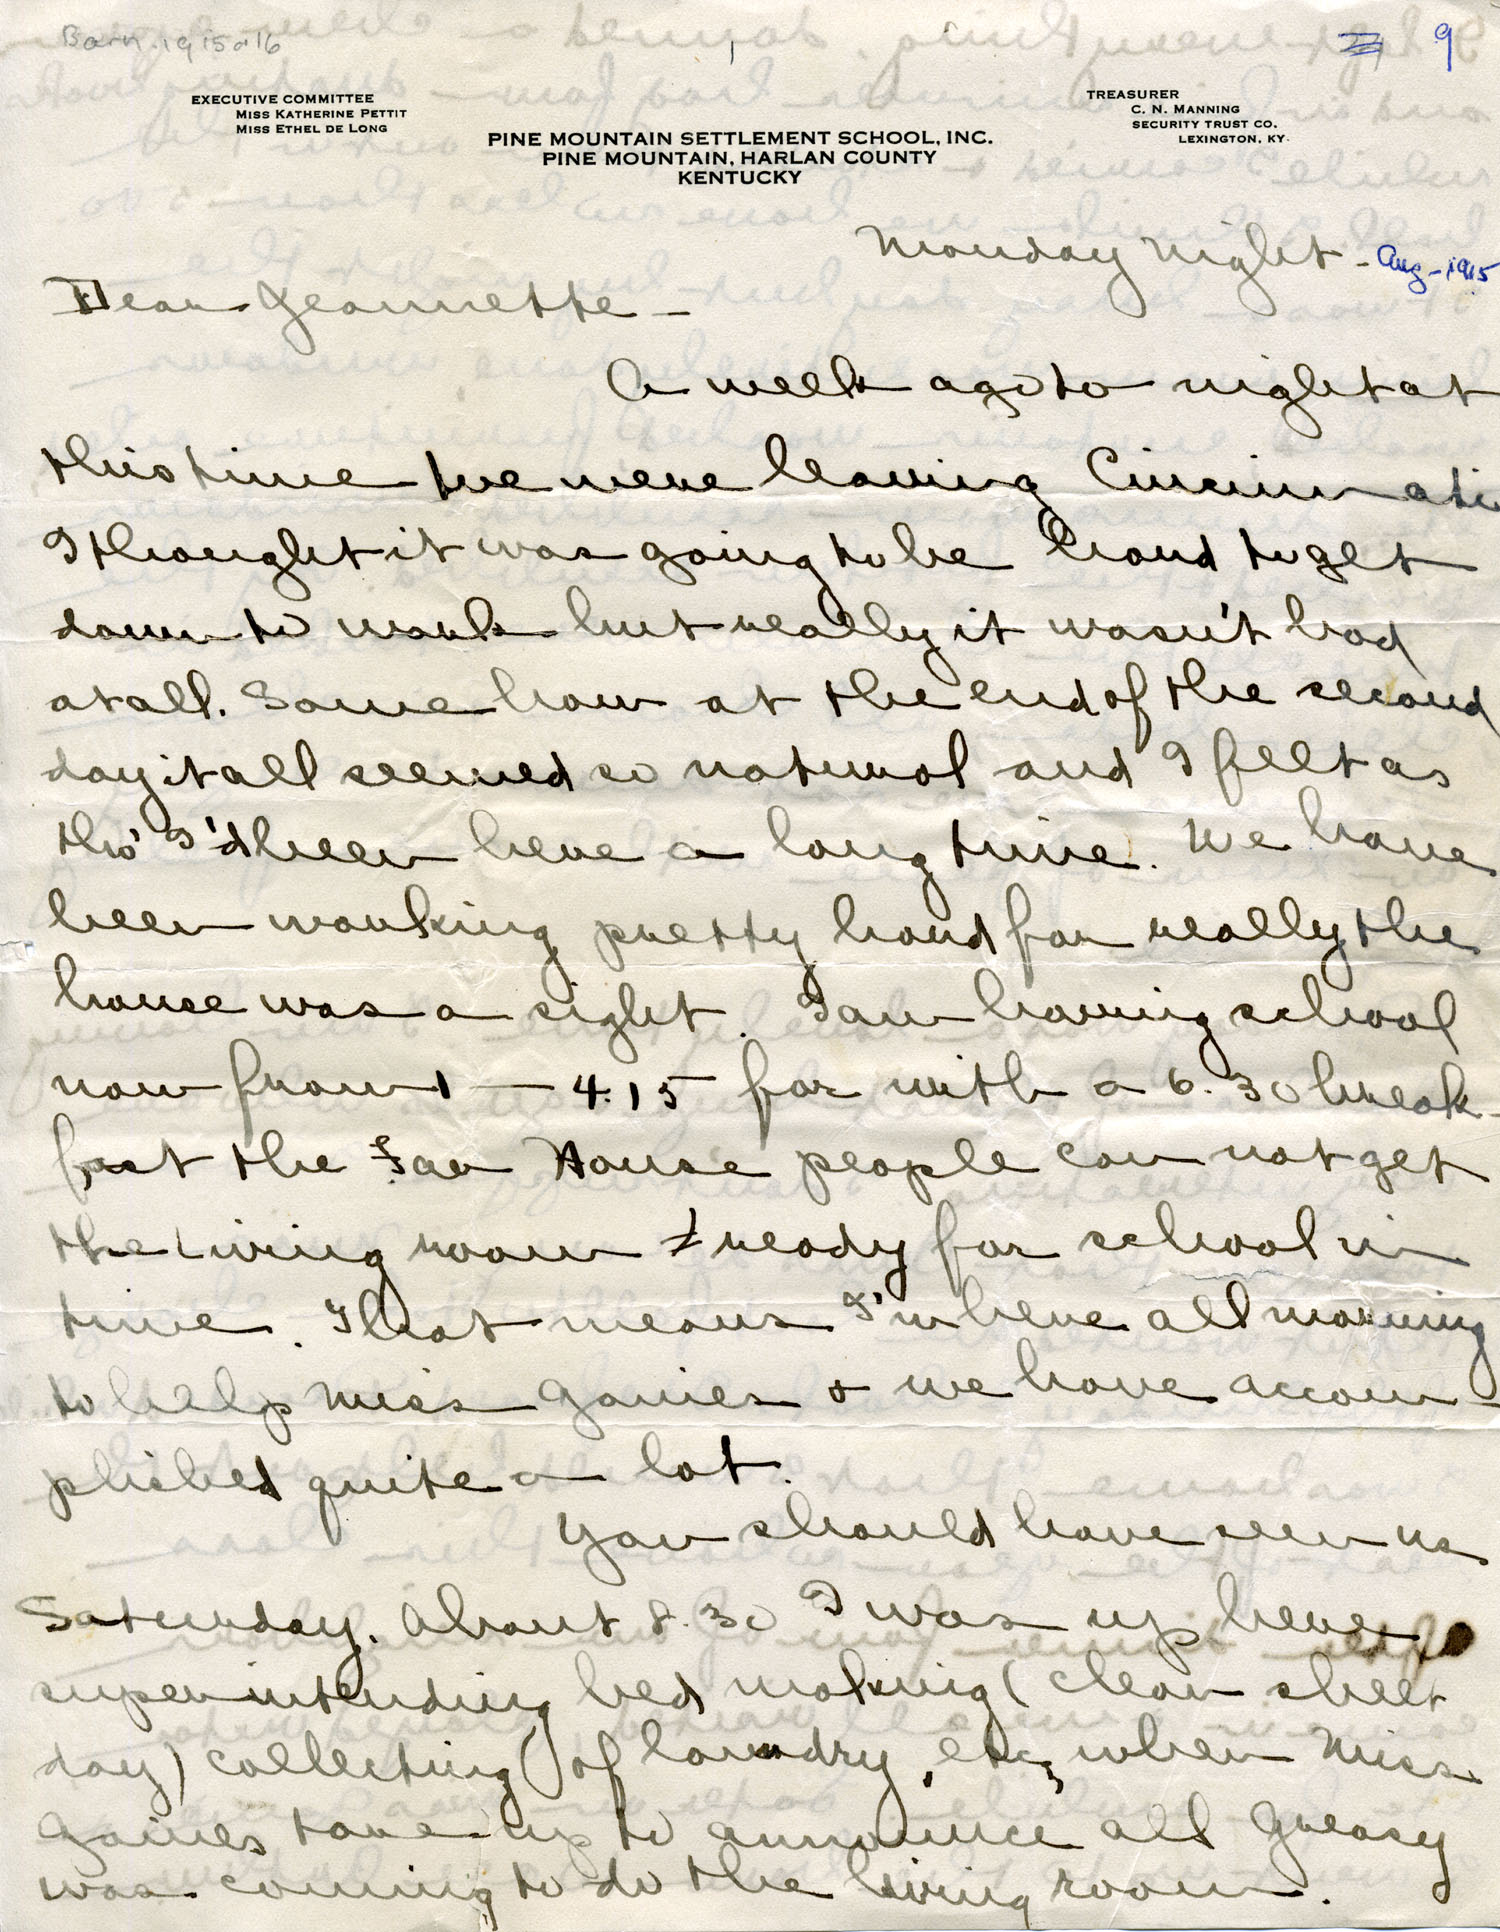 Barn. 1915-16
1
9
EXECUTIVE COMMITTEE
MISS KATHERINE PETTIT
MISS ETHEL DE LONG
TREASURER
C. N. MANNING
SECURITY TRUST CO.
LEXINGTON, KY.
PINE MOUNTAIN SETTLEMENT SCHOOL, INC.
PINE MOUNTAIN, HARLAN COUNTY
KENTUCKY
Monday Night - Aug-1915
Dear Jeannette -
A week ago to night at
this time we were leaving Cincinnati
I thought it was going to be hard to get
down to work but really it wasn't bad
at all. Some how at the end of the second
day it all seemed so natural and I felt as
tho' I'd been here a long time. We have
been working pretty hard for really the
house was a sight. I am having school
now from 1 - 4.15 for with a 6.30 break-
fast the Far House people can not get
the living room ready for school in
time. That means I'm here all morning
to help Miss Gaines + we have accom-
plished quite a lot.
You should have seen us
Saturday. About 8.30 I was up here
superintending bed making (clean sheet
day) collecting of laundry, etc, when Miss
Gaines tore up to announce all Greasy
was coming to do the living room.